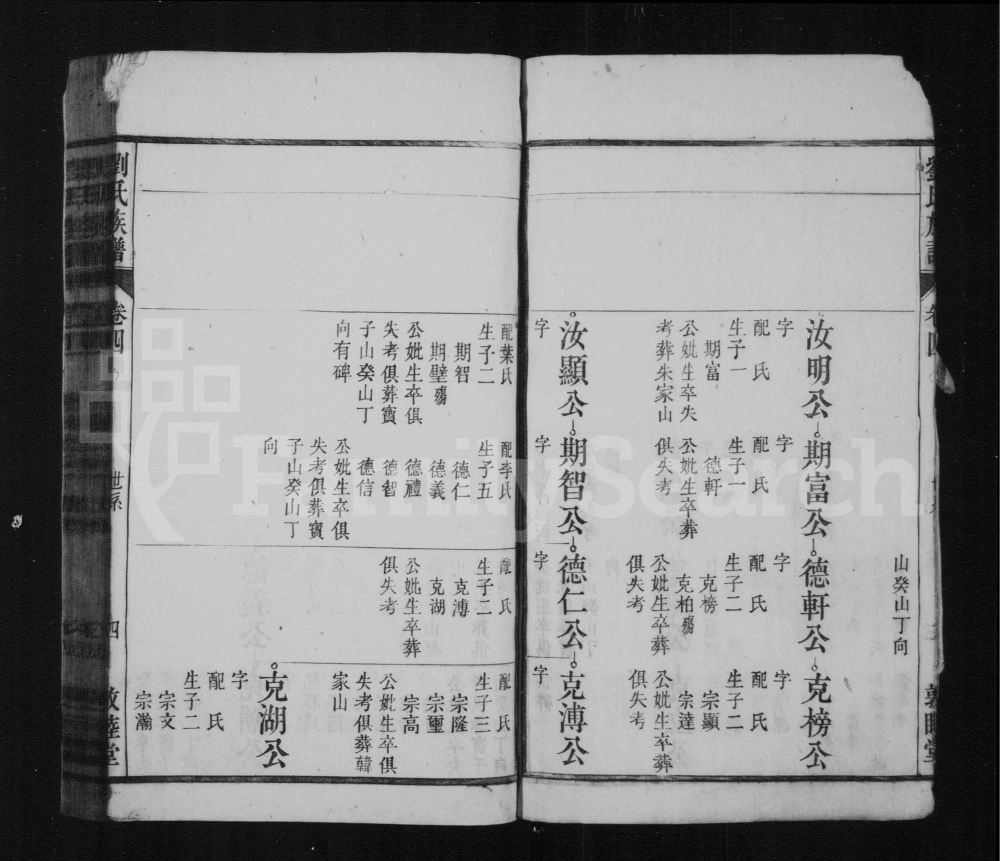 山癸山丁向
汝明公
字
配 氏
生子一
期富
公妣生卒失
考葬朱家山
期富公
字
配 氏
生子一
德軒
公妣生卒葬
俱失考
德軒公
字
配 氏
生子二
克榜
克柏殤
公妣生卒葬
俱失考
克榜公
字
配 氏
生子二
宗顯
宗達
公妣生卒葬
俱失考
汝顯公
字
配葉氏
生子二
期智
期璧殤
公妣生卒俱
失考俱葬寶
子山癸山丁
向有碑
期智公
字
配李氏
生子五
德仁
德義
德禮
德智
德信
公妣生卒俱
失考俱葬寶
子山癸山丁
向
德仁公
字
配 氏
生子二
克溥
克湖
公妣生卒葬
俱失考
克溥公
字
配 氏
生子三
宗隆
宗璽
宗高
公妣生卒俱
失考俱葬韓
家山
克湖公
字
配 氏
生子二
宗文
宗瀚
劉氏族譜
卷四
世系
四
敦睦堂
FamilySearch